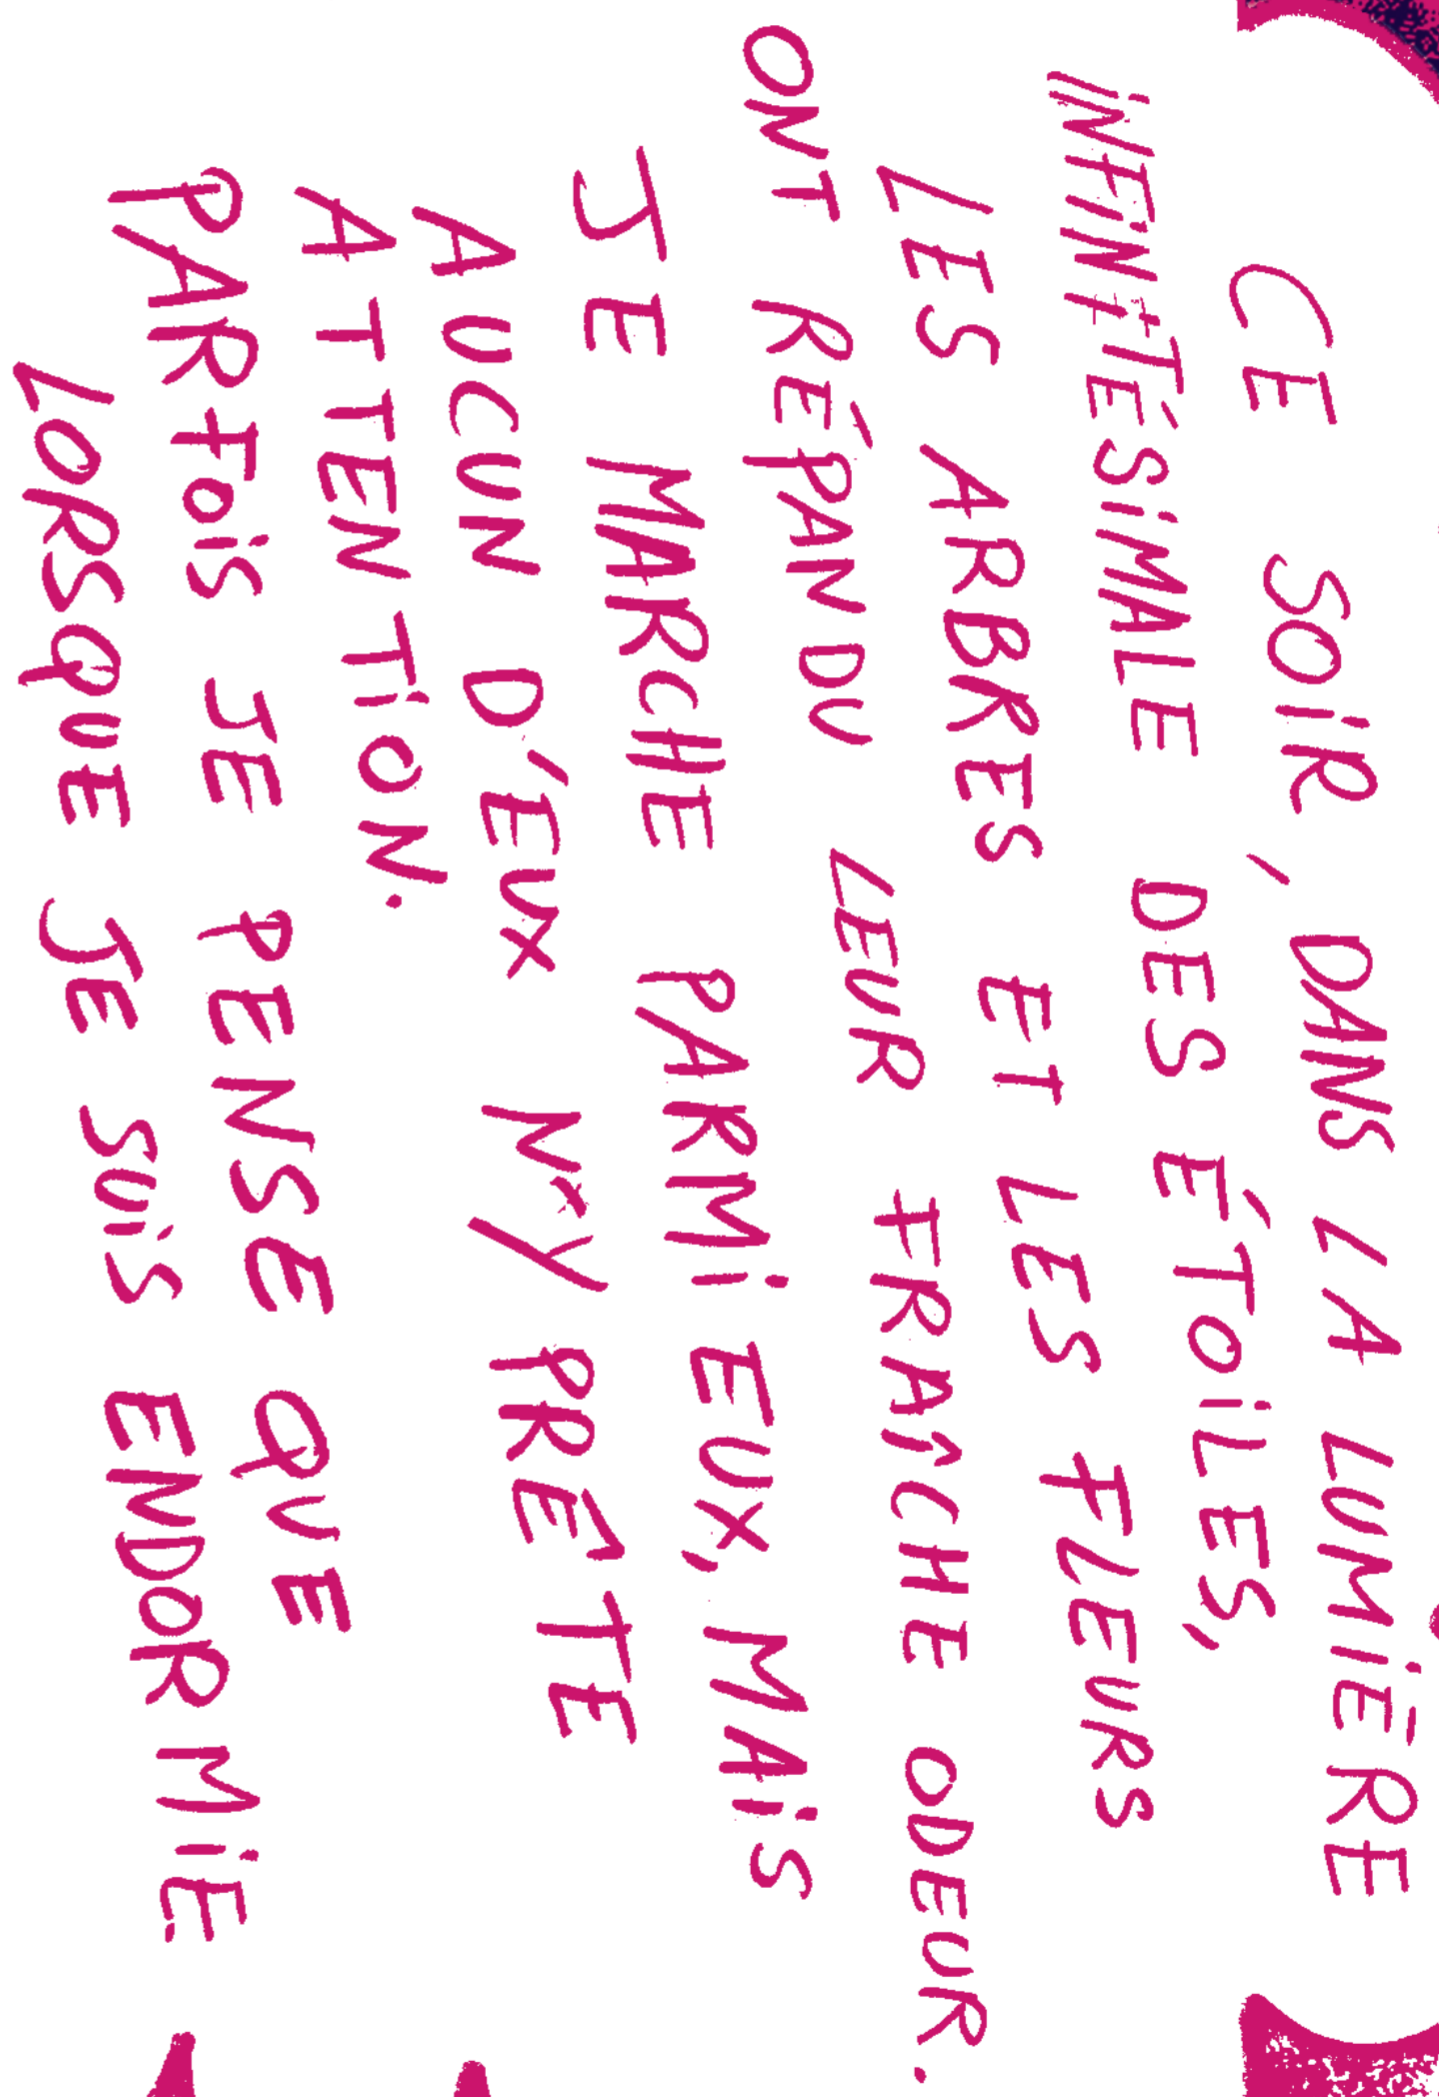 CE SOIR, DANS LA LUMIÈRE
INFINITÉSIMALE DES ÉTOILES,
LES ARBRES ET LES FLEURS
ONT RÉPANDU LEUR FRAÎCHE ODEUR.
JE MARCHE PARMI EUX, MAIS
AUCUN D'EUX N'Y PRÊTE
ATTENTION.
PARFOIS JE PENSE QUE
LORSQUE JE SUIS ENDORMIE